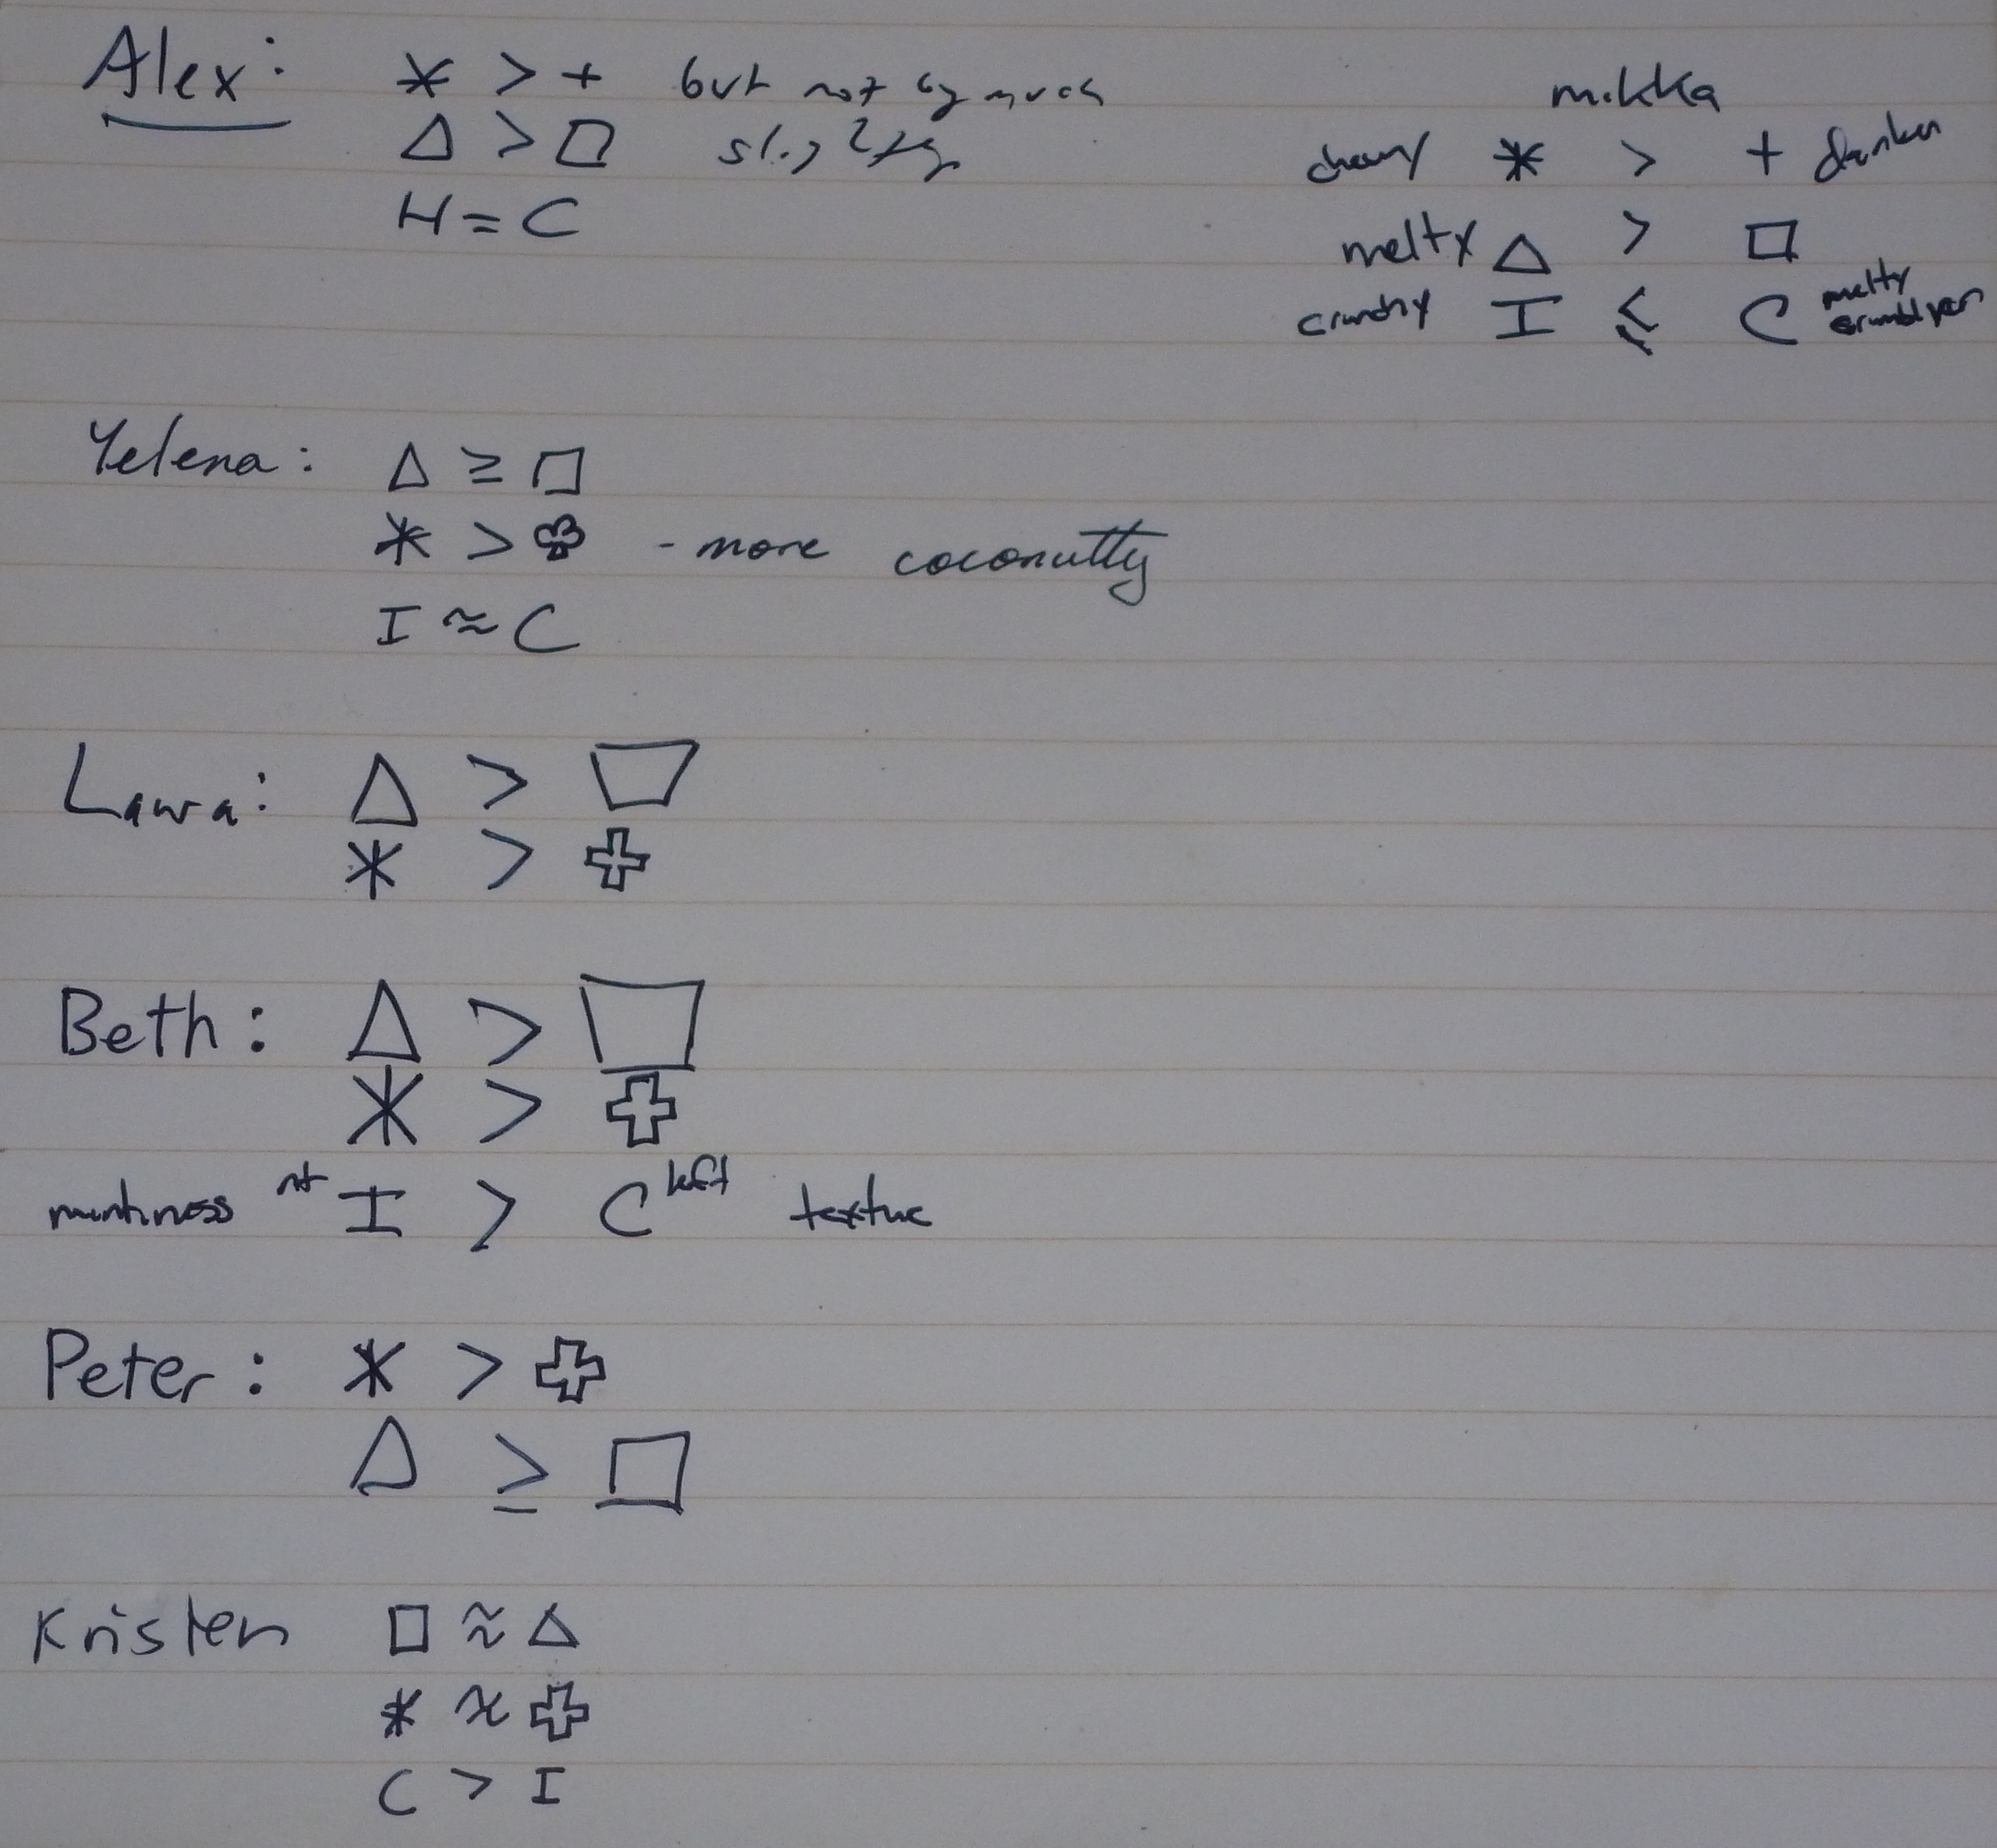 Alex: * > + but not by much
△ > □ slightly
H = C
mikka
chewy * > + darker
melty △ > □
crunchy I ≤ C melty crumblyer
Yelena: △ ≥ □
* > - more coconutty
I ≈ C
Laura: △ > □
* > ✚
Beth: △ > □
* > ✚
mintiness rt I > C left texture
Peter: * > ✚
△ ≥ □
Kristen □ ≈ △
* ≈ ✚
C > I